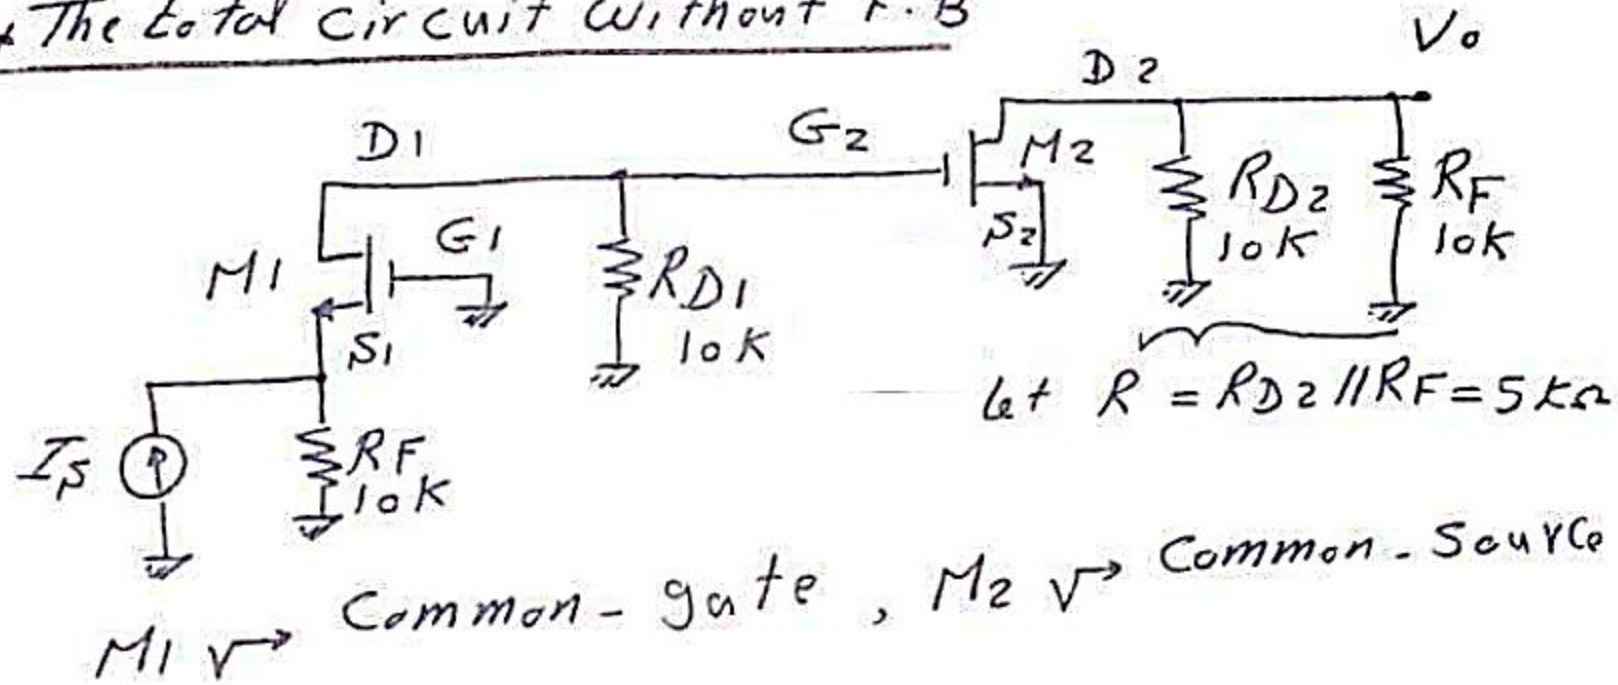 * The total circuit without F.B
Vo
D2
D1
G2
M2
S2
RD2
10K
RF
10K
M1
G1
S1
RD1
10K
Is
RF
10K
let R = RD2 // RF = 5 kΩ
M1 → Common-gate, M2 → Common-Source